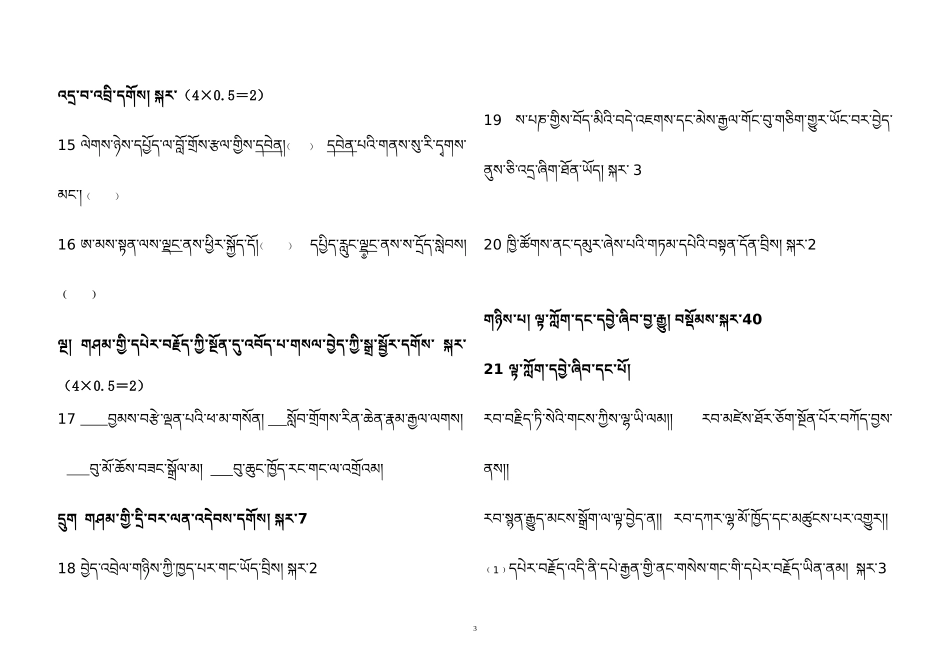 འདྲ་བ་འབྲི་དགོས། སྐར་（4×0.5＝2）
15 ལེགས་ཉེས་དཔྱོད་ལ་བློ་གྲོས་རྩལ་གྱིས་དབེན།（ ） དབེན་པའི་གནས་སུ་རི་དྭགས་
མང་།（ ）
16 ཨ་མས་སྟན་ལས་ལྡང་ནས་ཕྱིར་སྐྱོད་དོ།（ ） དཔྱིད་རླུང་ལྡང་ནས་ས་དྲོད་སླེབས།
（ ）
ལྔ། གཤམ་གྱི་དཔེར་བརྗོད་ཀྱི་སྔོན་དུ་འབོད་པ་གསལ་བྱེད་ཀྱི་སྒྲ་སྦྱོར་དགོས་ སྐར་
（4×0.5＝2）
17 ____བྱམས་བརྩེ་ལྡན་པའི་ཕ་མ་གསོན། ___སློབ་གྲོགས་རིན་ཆེན་རྣམ་རྒྱལ་ལགས།
___བུ་མོ་ཆོས་བཟང་སྒྲོལ་མ། ___བུ་ཆུང་ཁྱོད་རང་གང་ལ་འགྲོའམ།
དྲུག གཤམ་གྱི་དྲི་བར་ལན་འདེབས་དགོས། སྐར་7
18 བྱེད་འབྲེལ་གཉིས་ཀྱི་ཁྱད་པར་གང་ཡོད་བྲིས། སྐར་2
19 ས་པཎ་གྱིས་བོད་མིའི་བདེ་འཇགས་དང་མེས་རྒྱལ་གོང་བུ་གཅིག་གྱུར་ཡོང་བར་བྱེད་
ནུས་ཅི་འདྲ་ཞིག་ཐོན་ཡོད། སྐར་ 3
20 ཁྱི་ཚོགས་ནང་དམུར་ཞེས་པའི་གཏམ་དཔེའི་བསྟན་དོན་བྲིས། སྐར་2
གཉིས་པ། ལྟ་ཀློག་དང་དབྱེ་ཞིབ་བྱ་རྒྱུ། བསྡོམས་སྐར་40
21 ལྟ་ཀློག་དབྱེ་ཞིབ་དང་པོ།
རབ་བརྗིད་ཏི་སེའི་གངས་ཀྱིས་ལྷ་ཡི་ལམ།། རབ་མཛེས་ཐོར་ཅོག་སྔོན་པོར་བཀོད་བྱས་
ནས།།
རབ་སྙན་རྒྱུད་མངས་སྒྲོག་ལ་ལྟ་བྱེད་ན།། རབ་དཀར་ལྷ་མོ་ཁྱོད་དང་མཚུངས་པར་འགྱུར།།
（1）དཔེར་བརྗོད་འདི་ནི་དཔེ་རྒྱན་གྱི་ནང་གསེས་གང་གི་དཔེར་བརྗོད་ཡིན་ནམ། སྐར་3
3